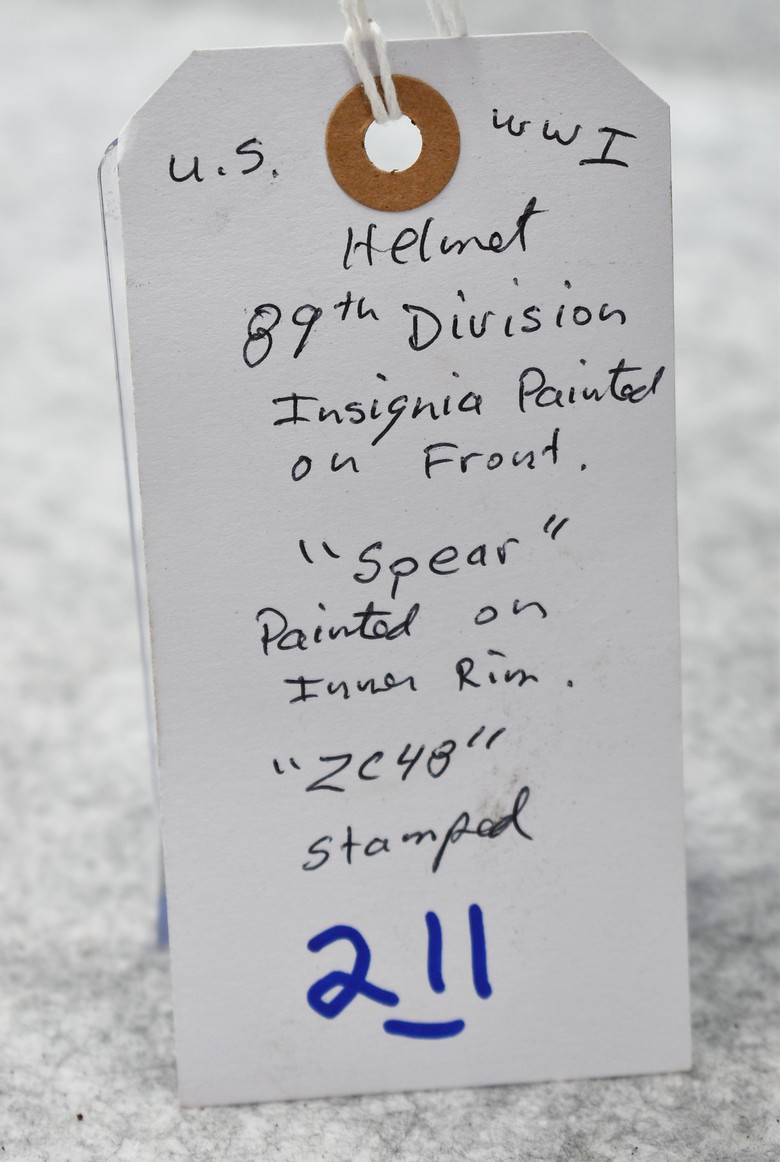 U.S. WWI
Helmet
89th Division
Insignia Painted
on Front.
"Spear"
Painted on
Inner Rim.
"ZC48"
stamped
211